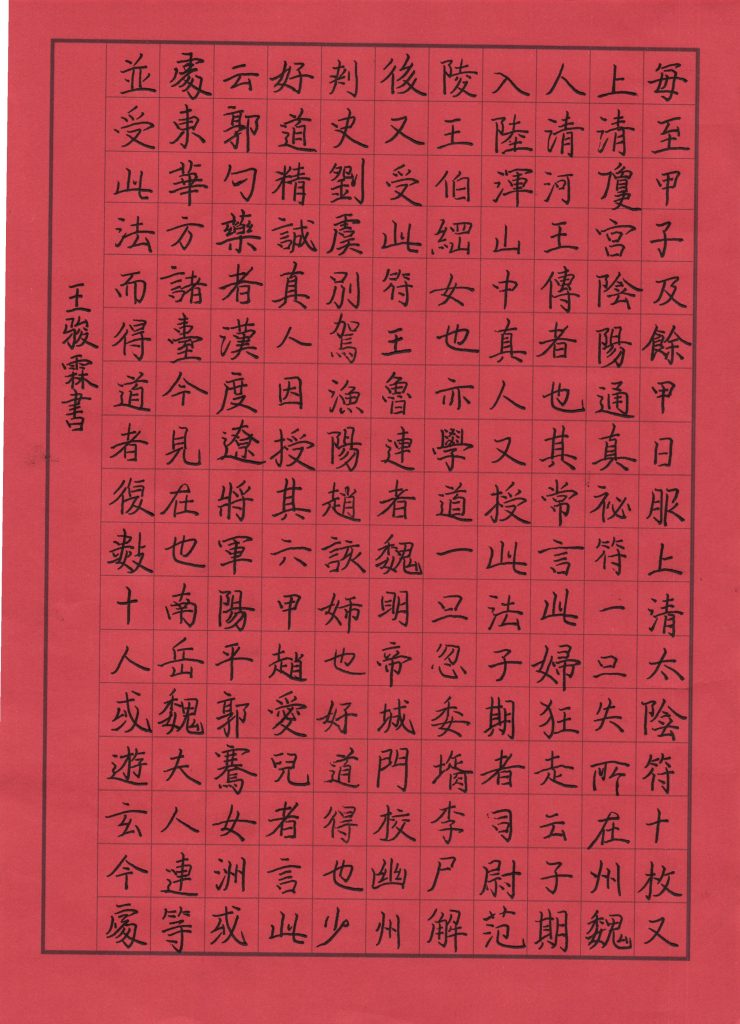 每至甲子及餘甲日服上清太陰符十枚又
上清瓊宮陰陽通真祕符一旦失所在州魏
人清河王傳者也其常言此婦狂走云子期
入陸渾山中真人又授此法子期者司尉范
陵王伯綱女也亦學道一旦忽委壻李尸解
後又受此符王魯連者魏明帝城門校幽州
刾史劉虞別駕漁陽趙該姊也好道得也少
好道精誠真人因授其六甲趙愛兒者言此
云郭勺藥者漢度遼將軍陽平郭騫女洲或
處東華方諸臺今見在也南岳魏夫人連等
並受此法而得道者復數十人或遊玄今處
王骏霖書